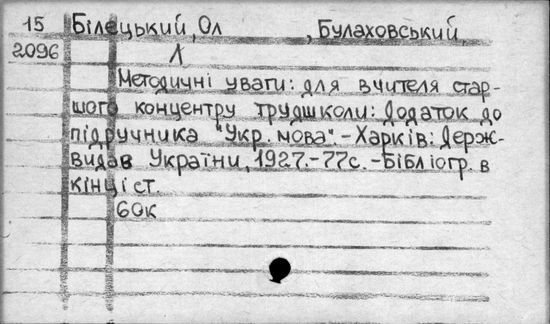 15 Білецький, Ол , Булаховський
2096 Л
Методичні уваги: для вчителя стар-
шого концентру трудшколи: Додаток до
підручника "Укр. мова". - Харків: Держ-
видав України, 1927. - 77с. - Бібліогр. в
кінці ст.
60к